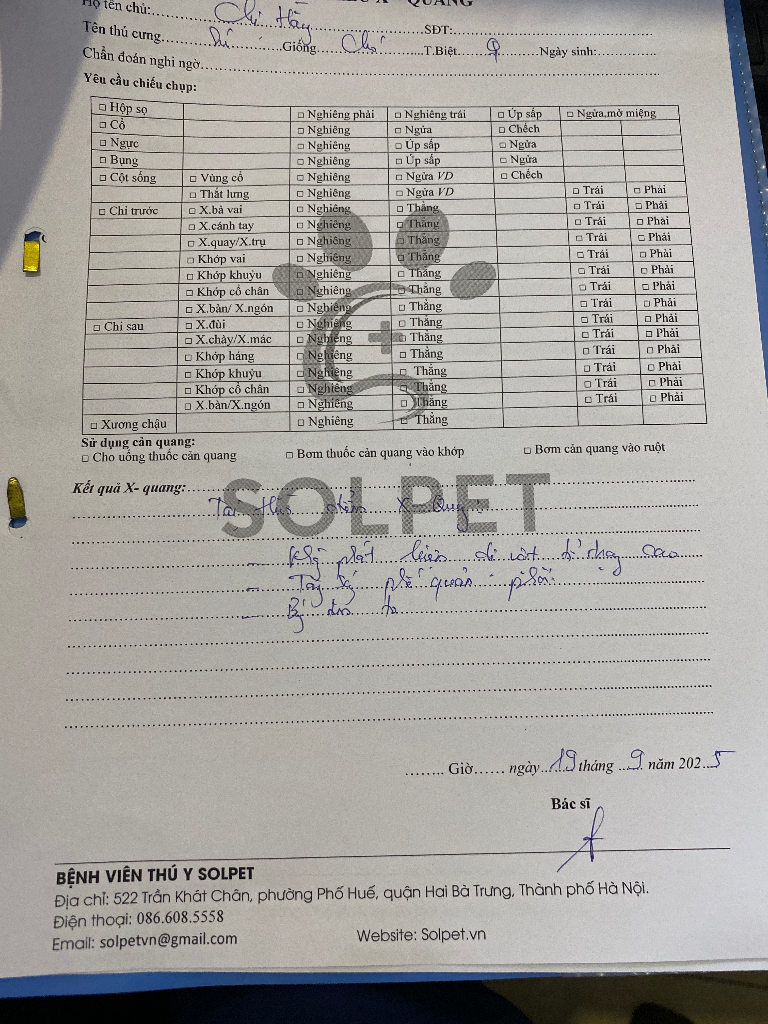 Họ tên chủ: Chị Hằng SĐT:
Tên thú cưng Giống Chó T.Biệt ♀ Ngày sinh:
Chẩn đoán nghi ngờ
Yêu cầu chiếu chụp:
□ Hộp sọ □ Nghiêng phải □ Nghiêng trái □ Úp sấp □ Ngửa,mở miệng
□ Cổ □ Nghiêng □ Ngửa □ Chếch
□ Ngực □ Nghiêng □ Úp sấp □ Ngửa
□ Bụng □ Nghiêng □ Úp sấp □ Ngửa
□ Cột sống □ Vùng cổ □ Nghiêng □ Ngửa VD □ Chếch
□ Thắt lưng □ Nghiêng □ Ngửa VD □ Trái □ Phải
□ Chi trước □ X.bả vai □ Nghiêng □ Thẳng □ Trái □ Phải
□ X.cánh tay □ Nghiêng □ Thẳng □ Trái □ Phải
□ X.quay/X.trụ □ Nghiêng □ Thẳng □ Trái □ Phải
□ Khớp vai □ Nghiêng □ Thẳng □ Trái □ Phải
□ Khớp khuỷu □ Nghiêng □ Thẳng □ Trái □ Phải
□ Khớp cổ chân □ Nghiêng □ Thẳng □ Trái □ Phải
□ X.bàn/ X.ngón □ Nghiêng □ Thẳng □ Trái □ Phải
□ Chi sau □ X.đùi □ Nghiêng □ Thẳng □ Trái □ Phải
□ X.chày/X.mác □ Nghiêng □ Thẳng □ Trái □ Phải
□ Khớp háng □ Nghiêng □ Thẳng □ Trái □ Phải
□ Khớp khuỷu □ Nghiêng □ Thẳng □ Trái □ Phải
□ Khớp cổ chân □ Nghiêng □ Thẳng □ Trái □ Phải
□ X.bàn/X.ngón □ Nghiêng □ Thẳng □ Trái □ Phải
□ Xương chậu □ Nghiêng □ Thẳng
Sử dụng cản quang:
□ Cho uống thuốc cản quang □ Bơm thuốc cản quang vào khớp □ Bơm cản quang vào ruột
Kết quả X- quang:
SOLPET
Tại thời điểm X-Quang
- Không phát hiện dị vật
- phế quản phổi
Giờ ngày 19 tháng 9 năm 2025
Bác sĩ
BỆNH VIÊN THÚ Y SOLPET
Địa chỉ: 522 Trần Khát Chân, phường Phố Huế, quận Hai Bà Trưng, Thành phố Hà Nội.
Điện thoại: 086.608.5558
Email: solpetvn@gmail.com Website: Solpet.vn